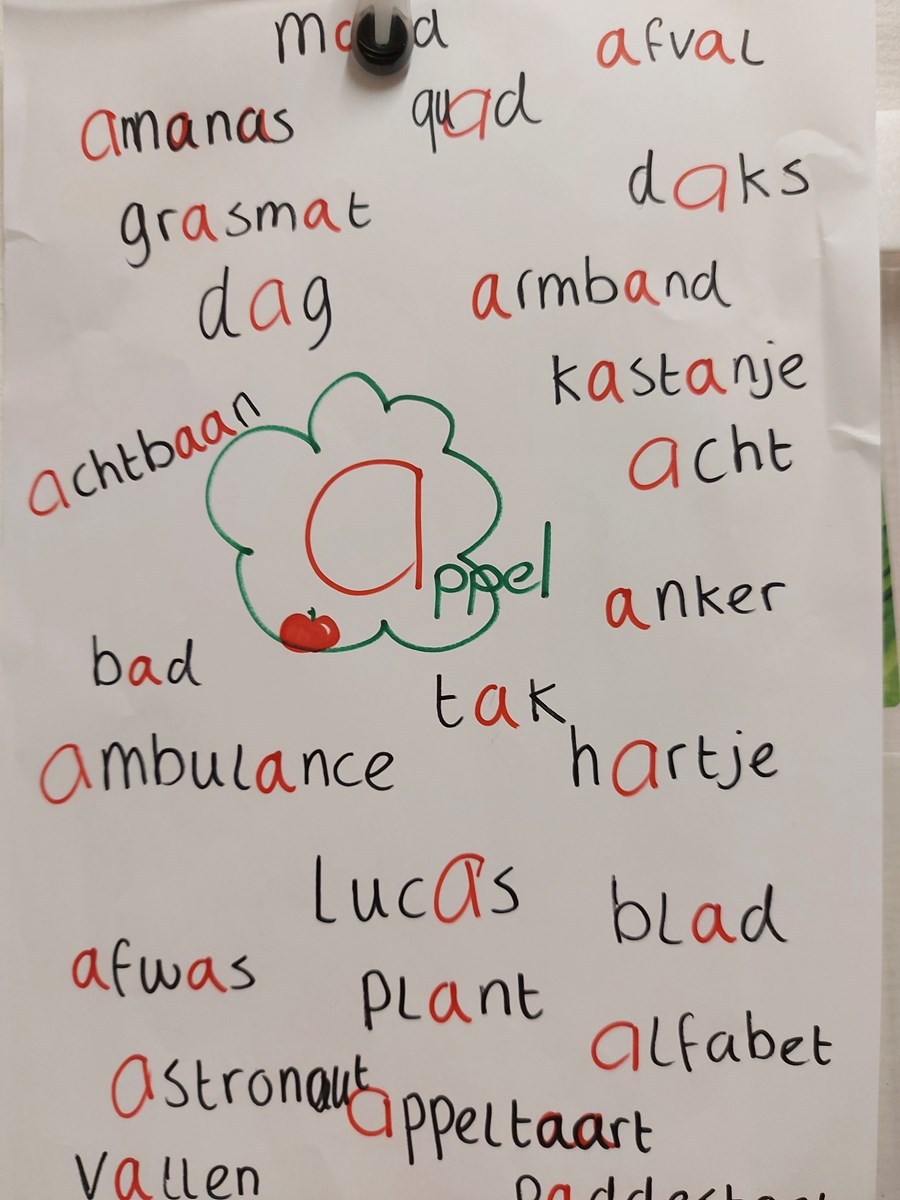 afval
quad
amanas
daks
grasmat
dag
armband
kastanje
achtbaan
acht
appel
anker
bad
tak
ambulance
hartje
Lucas
blad
afwas
plant
alfabet
astronaut
appeltaart
vallen